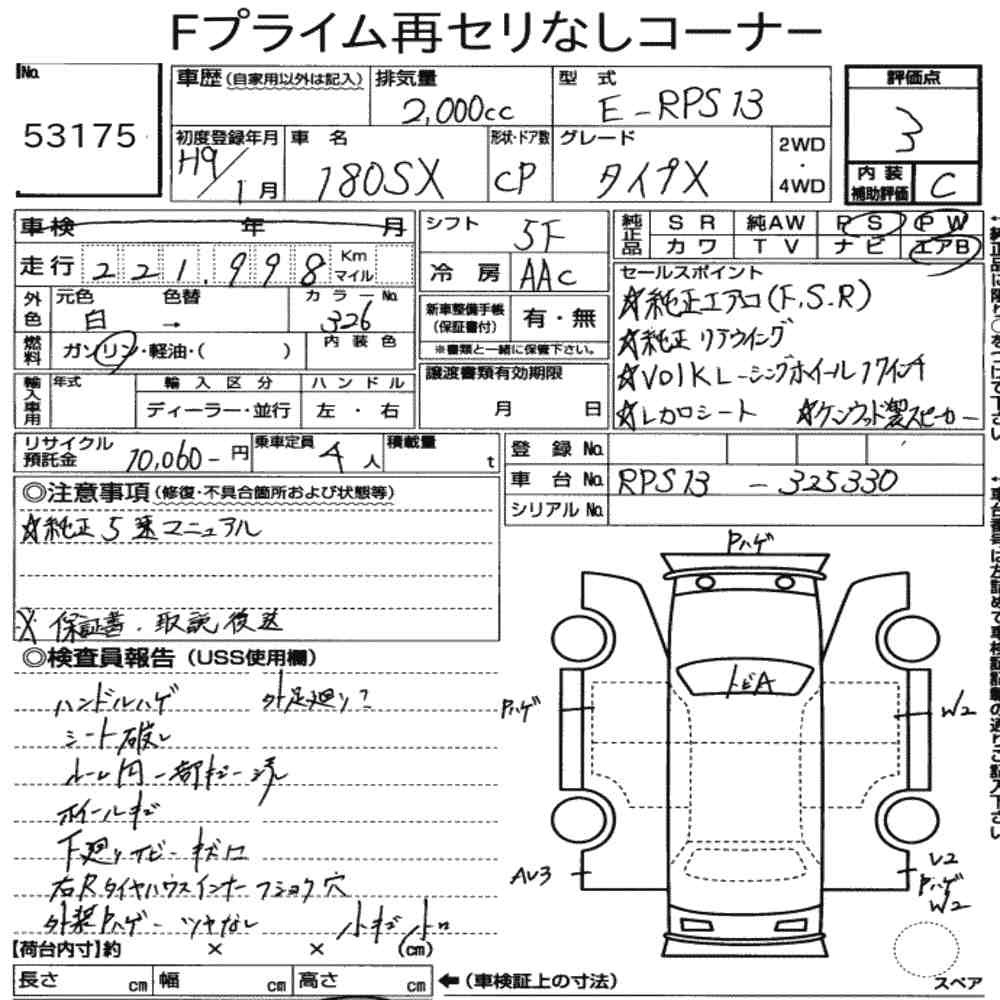 Fプライム再セリなしコーナー
No.
53175
車歴(自家用以外は記入)
排気量
2,000cc
型 式
E-RPS13
評価点
3
初度登録年月
H9/1月
車 名
180SX
形状・ドア数
CP
グレード
タイプX
2WD
・
4WD
内装
補助評価
C
車検 年 月
走行 221,998 Km
マイル
シフト
5F
冷 房
AAC
純正品
SR 純AW PS PW
カワ TV ナビ エアB
セールスポイント
☆純正エアロ(F,S,R)
☆純正リアウイング
☆VOLKレーシングホイール17インチ
☆レカロシート ☆ケンウッド製スピーカー
外色
元色
白
色替
→
カラーNo.
326
燃料
ガソリン・軽油・( )
内装色
新車整備手帳
(保証書付)
有・無
※書類と一緒に保管下さい。
輸入車用
年式
輸入区分
ハンドル
ディーラー・並行
左・右
譲渡書類有効期限
月 日
リサイクル
預託金
10,060-円
乗車定員
4人
積載量
t
登 録 No.
車 台 No.
RPS13 - 325330
シリアル No.
◎注意事項(修復・不具合箇所および状態等)
☆純正5速マニュアル
※保証書・取説後送
◎検査員報告(USS使用欄)
ハンドルハゲ 外足廻り?
シート破レ
ルーム内一部キズ・汚レ
ホイールキズ
下廻りサビ・キズ凹
右Rタイヤハウスインナーフショク穴
外装Pハゲ・ツヤなし 小キズ小凹
【荷台内寸】約 × × (cm)
長さ cm 幅 cm 高さ cm
←(車検証上の寸法)
Pハゲ
トビA
Pハゲ
W2
AU3
U2
Pハゲ
W2
スペア